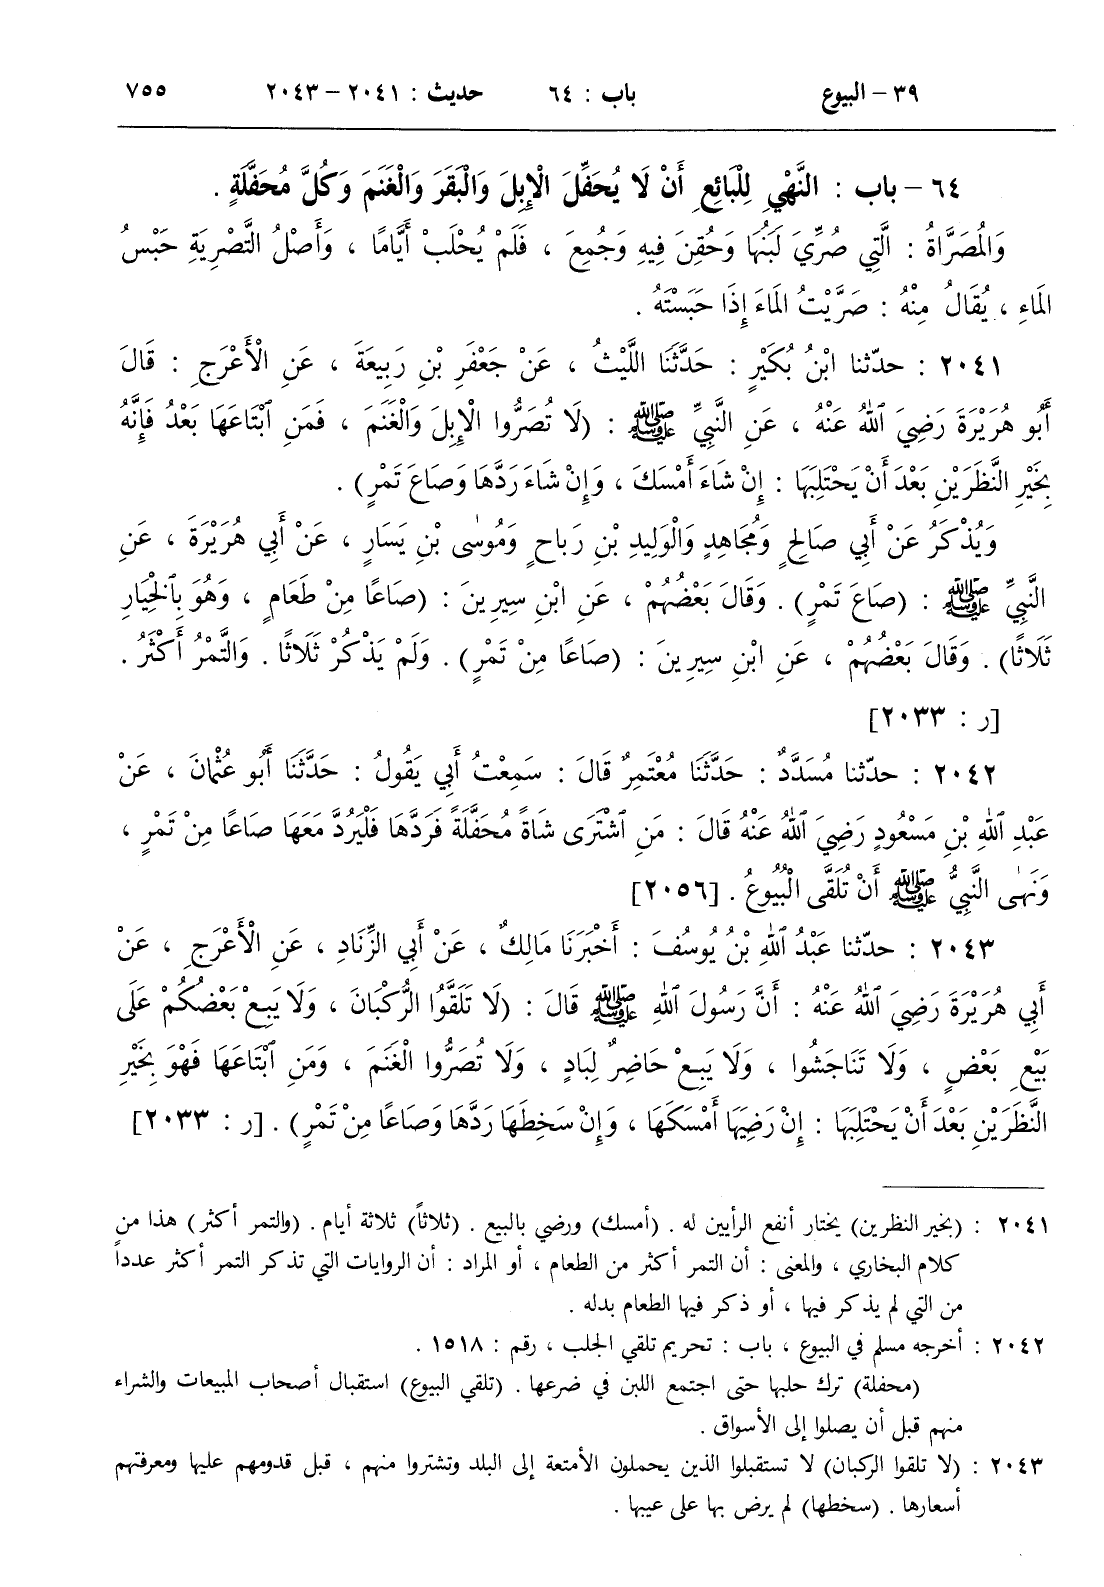 ٣٩ - البيوع باب : ٦٤ حديث : ٢٠٤١ - ٢٠٤٣ ٧٥٥
٦٤ - باب : النَّهْيِ لِلْبَائِعِ أَنْ لَا يُحَفِّلَ الْإِبِلَ وَالْبَقَرَ وَالْغَنَمَ وَكُلَّ مُحَفَّلَةٍ .
وَالْمُصَرَّاةُ : الَّتِي صُرِّيَ لَبَنُهَا وَحُقِنَ فِيهِ وَجُمِعَ ، فَلَمْ يُحْلَبْ أَيَّامًا ، وَأَصْلُ التَّصْرِيَةِ حَبْسُ
الْمَاءِ ، يُقَالُ مِنْهُ : صَرَّيْتُ الْمَاءَ إِذَا حَبَسْتَهُ .
٢٠٤١ : حدّثنا ابْنُ بُكَيْرٍ : حَدَّثَنَا اللَّيْثُ ، عَنْ جَعْفَرِ بْنِ رَبِيعَةَ ، عَنِ الْأَعْرَجِ : قَالَ
أَبُو هُرَيْرَةَ رَضِيَ ٱللّٰهُ عَنْهُ ، عَنِ النَّبِيِّ ﷺ : (لَا تُصَرُّوا الْإِبِلَ وَالْغَنَمَ ، فَمَنِ ٱبْتَاعَهَا بَعْدُ فَإِنَّهُ
بِخَيْرِ النَّظَرَيْنِ بَعْدَ أَنْ يَحْتَلِبَهَا : إِنْ شَاءَ أَمْسَكَ ، وَإِنْ شَاءَ رَدَّهَا وَصَاعَ تَمْرٍ) .
وَيُذْكَرُ عَنْ أَبِي صَالِحٍ وَمُجَاهِدٍ وَالْوَلِيدِ بْنِ رَبَاحٍ وَمُوسٰى بْنِ يَسَارٍ ، عَنْ أَبِي هُرَيْرَةَ ، عَنِ
النَّبِيِّ ﷺ : (صَاعَ تَمْرٍ) . وَقَالَ بَعْضُهُمْ ، عَنِ ابْنِ سِيرِينَ : (صَاعًا مِنْ طَعَامٍ ، وَهُوَ بِٱلْخِيَارِ
ثَلَاثًا) . وَقَالَ بَعْضُهُمْ ، عَنِ ابْنِ سِيرِينَ : (صَاعًا مِنْ تَمْرٍ) . وَلَمْ يَذْكُرْ ثَلَاثًا . وَالتَّمْرُ أَكْثَرُ .
[ر : ٢٠٣٣]
٢٠٤٢ : حدّثنا مُسَدَّدٌ : حَدَّثَنَا مُعْتَمِرٌ قَالَ : سَمِعْتُ أَبِي يَقُولُ : حَدَّثَنَا أَبُو عُثْمَانَ ، عَنْ
عَبْدِ ٱللّٰهِ بْنِ مَسْعُودٍ رَضِيَ ٱللّٰهُ عَنْهُ قَالَ : مَنِ ٱشْتَرَى شَاةً مُحَفَّلَةً فَرَدَّهَا فَلْيَرُدَّ مَعَهَا صَاعًا مِنْ تَمْرٍ ،
وَنَهٰى النَّبِيُّ ﷺ أَنْ تُلَقَّى الْبُيُوعُ . [٢٠٥٦]
٢٠٤٣ : حدّثنا عَبْدُ ٱللّٰهِ بْنُ يُوسُفَ : أَخْبَرَنَا مَالِكٌ ، عَنْ أَبِي الزِّنَادِ ، عَنِ الْأَعْرَجِ ، عَنْ
أَبِي هُرَيْرَةَ رَضِيَ ٱللّٰهُ عَنْهُ : أَنَّ رَسُولَ ٱللّٰهِ ﷺ قَالَ : (لَا تَلَقَّوُا الرُّكْبَانَ ، وَلَا يَبِعْ بَعْضُكُمْ عَلَى
بَيْعِ بَعْضٍ ، وَلَا تَنَاجَشُوا ، وَلَا يَبِعْ حَاضِرٌ لِبَادٍ ، وَلَا تُصَرُّوا الْغَنَمَ ، وَمَنِ ٱبْتَاعَهَا فَهْوَ بِخَيْرِ
النَّظَرَيْنِ بَعْدَ أَنْ يَحْتَلِبَهَا : إِنْ رَضِيَهَا أَمْسَكَهَا ، وَإِنْ سَخِطَهَا رَدَّهَا وَصَاعًا مِنْ تَمْرٍ) . [ر : ٢٠٣٣]
٢٠٤١ : (بخير النظرين) يختار أنفع الرأيين له . (أمسك) ورضي بالبيع . (ثلاثاً) ثلاثة أيام . (والتمر أكثر) هذا من
كلام البخاري ، والمعنى : أن التمر أكثر من الطعام ، أو المراد : أن الروايات التي تذكر التمر أكثر عدداً
من التي لم يذكر فيها ، أو ذكر فيها الطعام بدله .
٢٠٤٢ : أخرجه مسلم في البيوع ، باب : تحريم تلقي الجلب ، رقم : ١٥١٨ .
(محفلة) ترك حلبها حتى اجتمع اللبن في ضرعها . (تلقي البيوع) استقبال أصحاب المبيعات والشراء
منهم قبل أن يصلوا إلى الأسواق .
٢٠٤٣ : (لا تلقوا الركبان) لا تستقبلوا الذين يحملون الأمتعة إلى البلد وتشتروا منهم ، قبل قدومهم عليها ومعرفتهم
أسعارها . (سخطها) لم يرض بها على عيبها .